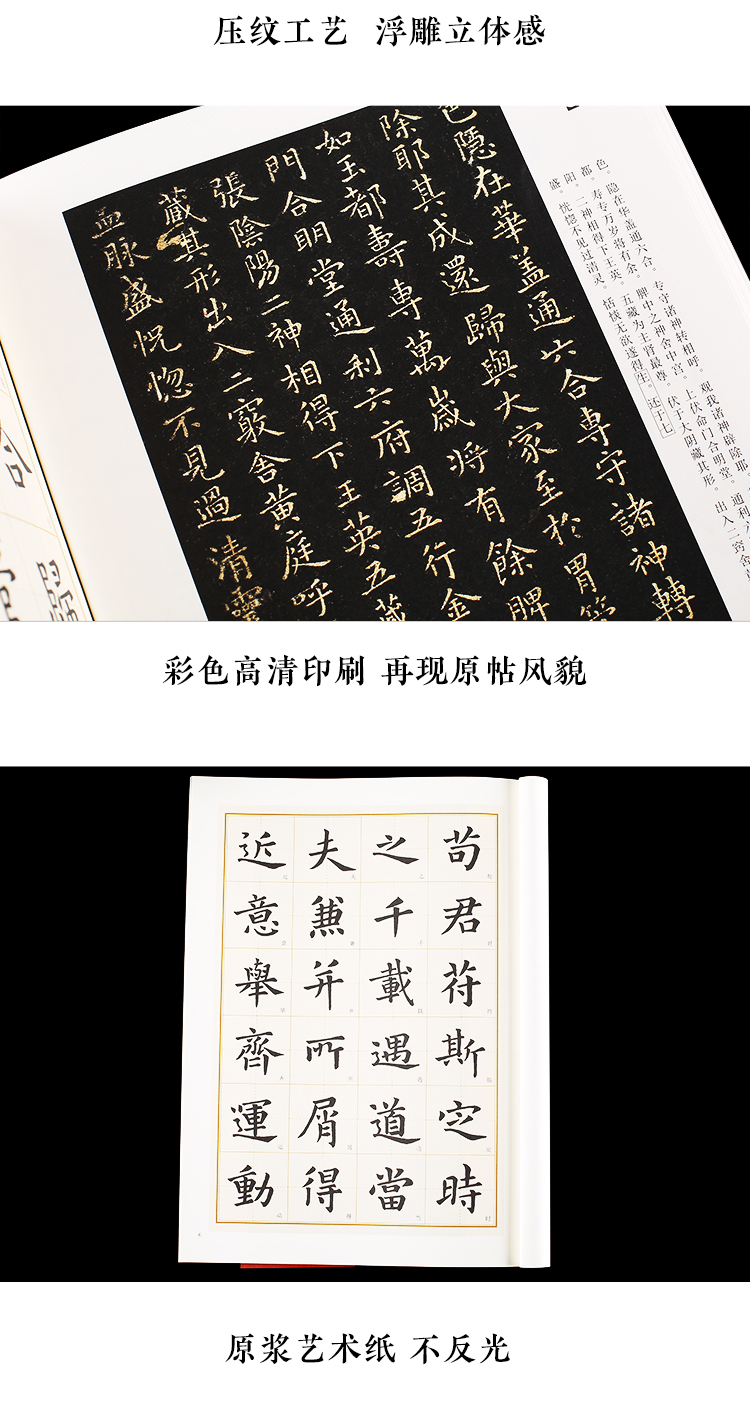 压纹工艺 浮雕立体感
色。隐在华盖通六合。专守诸神转相呼。观我诸神辟除耶
都。寿专万岁将有余。脾中之神舍中宫。上伏命门合明堂。通利
阳。二神相得下王英。五藏为王肾最尊。伏于大阴藏其形。出入二窍舍
盛。恍惚不见过清灵。恬惔无欲遂得生。还于七
色隱在華盖通六合專守諸神轉
除耶其成還歸與大家至於胃管
如王都壽專萬歲將有餘脾
門合明堂通利六府調五行金
張陰陽二神相得下王英五藏
藏其形出入二竅舍黄庭呼
血脉盛怳惚不見過清靈
彩色高清印刷 再现原帖风貌
苟君苻斯定時
之千載遇道當
夫兼并所屑得
近意舉齊運動
原浆艺术纸 不反光